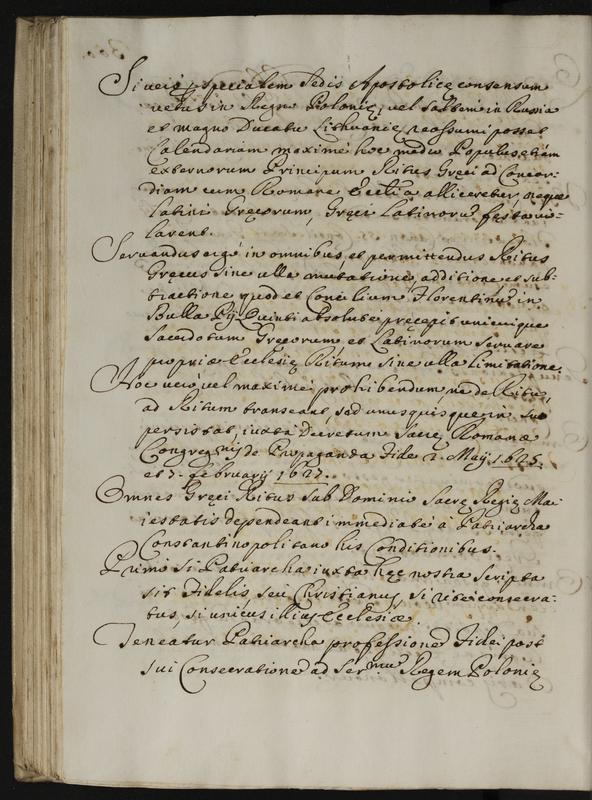 Si verò p specialem Sedis Apostolicę consensum
vetus in Regno Polonię, vel saltem in Russia
et magno Ducatu Lithuanię, reassumi posset
Calendarium maximé hoc modo Populus etiam
externorum Principum Ritus Gręci ad Concor-
diam cum Romana Ecclia alliceretur, neque
Latini Gręcorum, Gręci Latinorū festa vio-
larent.
Servandus ergò in omnibus, et permittendus Ritus
Gręcus sine ulla mutatione, additione et sub-
tractione quod et Concilium Florentinū in
Bulla Pij Quinti absoluté pręcepit unicuique
Sacerdotum Gręcorum et Latinorum servare
propriæ Ecclesię Ritum sine ulla limitatione.
Hoc verò vel maximé prohibendum, ne de Ritu,
ad Ritum transeant, sed unusquisque in suo
persistat, iuxta Decretum Sacrę Romanæ
Congregnis de Propaganda Fide 2. Maij 1625.
et 7. Februarij 1627.
Omnes Gręci Ritus sub Dominio Sacrę Regię Ma-
iestatis dependeant immediaté à Patriarcha
Constantinopolitano his Conditionibus.
Primò Si Patriarcha iuxta hęc nostra scripta
sit Fidelis, seu Christianus, si rité consecra-
tus, si unicus illius Ecclesiæ.
Teneatur Patriarcha professionē Fidei post
sui Consecrationē ad Sermū Regem Polonię